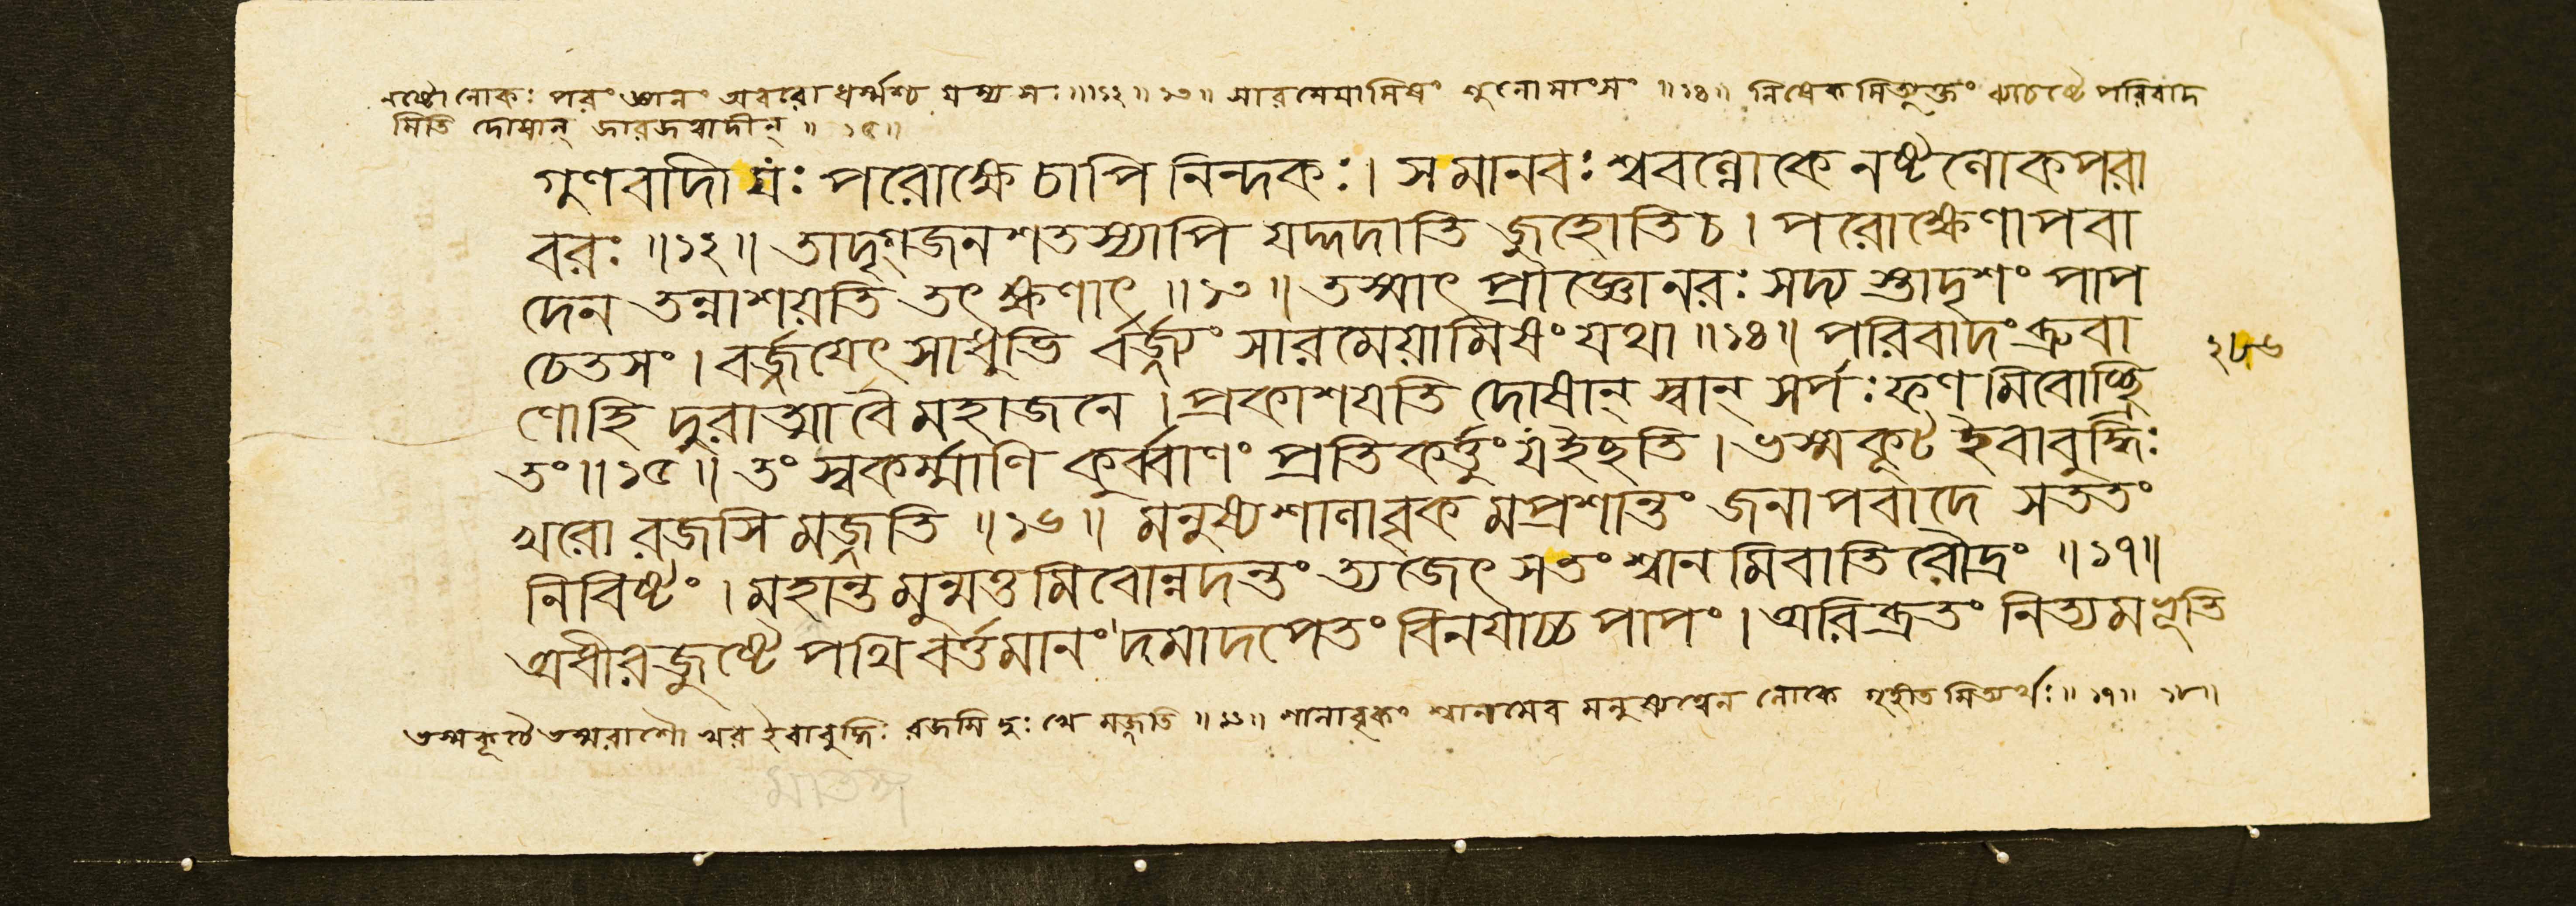 নষ্টো লোকঃ পরং জ্ঞানং অবরো ধর্ম্মশ্চ যস্য সঃ ॥১২॥ ১৩॥ সারমেয়ামিষং শুনোমাংসং ॥১৪॥ নিষেকমিত্যুক্তং ব্যাচষ্টে পরিবাদ
মিতি দোষান্ জারজত্বাদীন্ ॥ ১৫॥
গুণবাদী যঃ পরোক্ষে চাপি নিন্দকঃ। স মানবঃ শ্ববল্লোকে নষ্টলোকপরা
বরঃ ॥১২॥ তাদৃগ্জনশতস্যাপি যদ্দদাতি জুহোতি চ। পরোক্ষেণাপবা
দেন তন্নাশয়তি তৎ ক্ষণাৎ ॥১৩॥ তস্মাৎ প্রাজ্ঞো নরঃ সদ্য স্তাদৃশং পাপ
চেতসং। বর্জ্জয়েৎ সাধুভি র্বর্জ্জ্যং সারমেয়ামিষং যথা ॥১৪॥ পরিবাদং ব্রুবা
ণোহি দুরাত্মা বৈ মহাজনে। প্রকাশয়তি দোষান্ স্বান্ সর্পঃ ফণমিবোচ্ছ্রি
তং॥১৫॥ তং স্বকর্ম্মাণি কুর্ব্বাণং প্রতিকর্ত্তুং য ইছতি। ভস্মকূট ইবাবুদ্ধিঃ
খরো রজসি মজ্জতি ॥১৬॥ মনুষ্যশালাবৃক মপ্রশান্তং জনাপবাদে সততং
নিবিষ্টং। মহান্ত মুন্মত্ত মিবোন্নদন্তং ত্যজেৎ সতং শ্বান মিবাতিরৌদ্রং ॥১৭॥
অধীরজুষ্টে পথি বর্ত্তমানং দমাদপেতং বিনয়াচ্চ পাপং। অরিব্রতং নিত্যমভূতি
২৮৬
ভস্মকূটে ভস্মরাশৌ খর ইবাবুদ্ধিঃ রজসি দুঃখে মজ্জতি ॥১৬॥ শালাবৃকং শ্বানমেব মনুষ্যত্বেন লোকে গৃহীতমিত্যর্থঃ॥ ১৭॥ ১৮॥